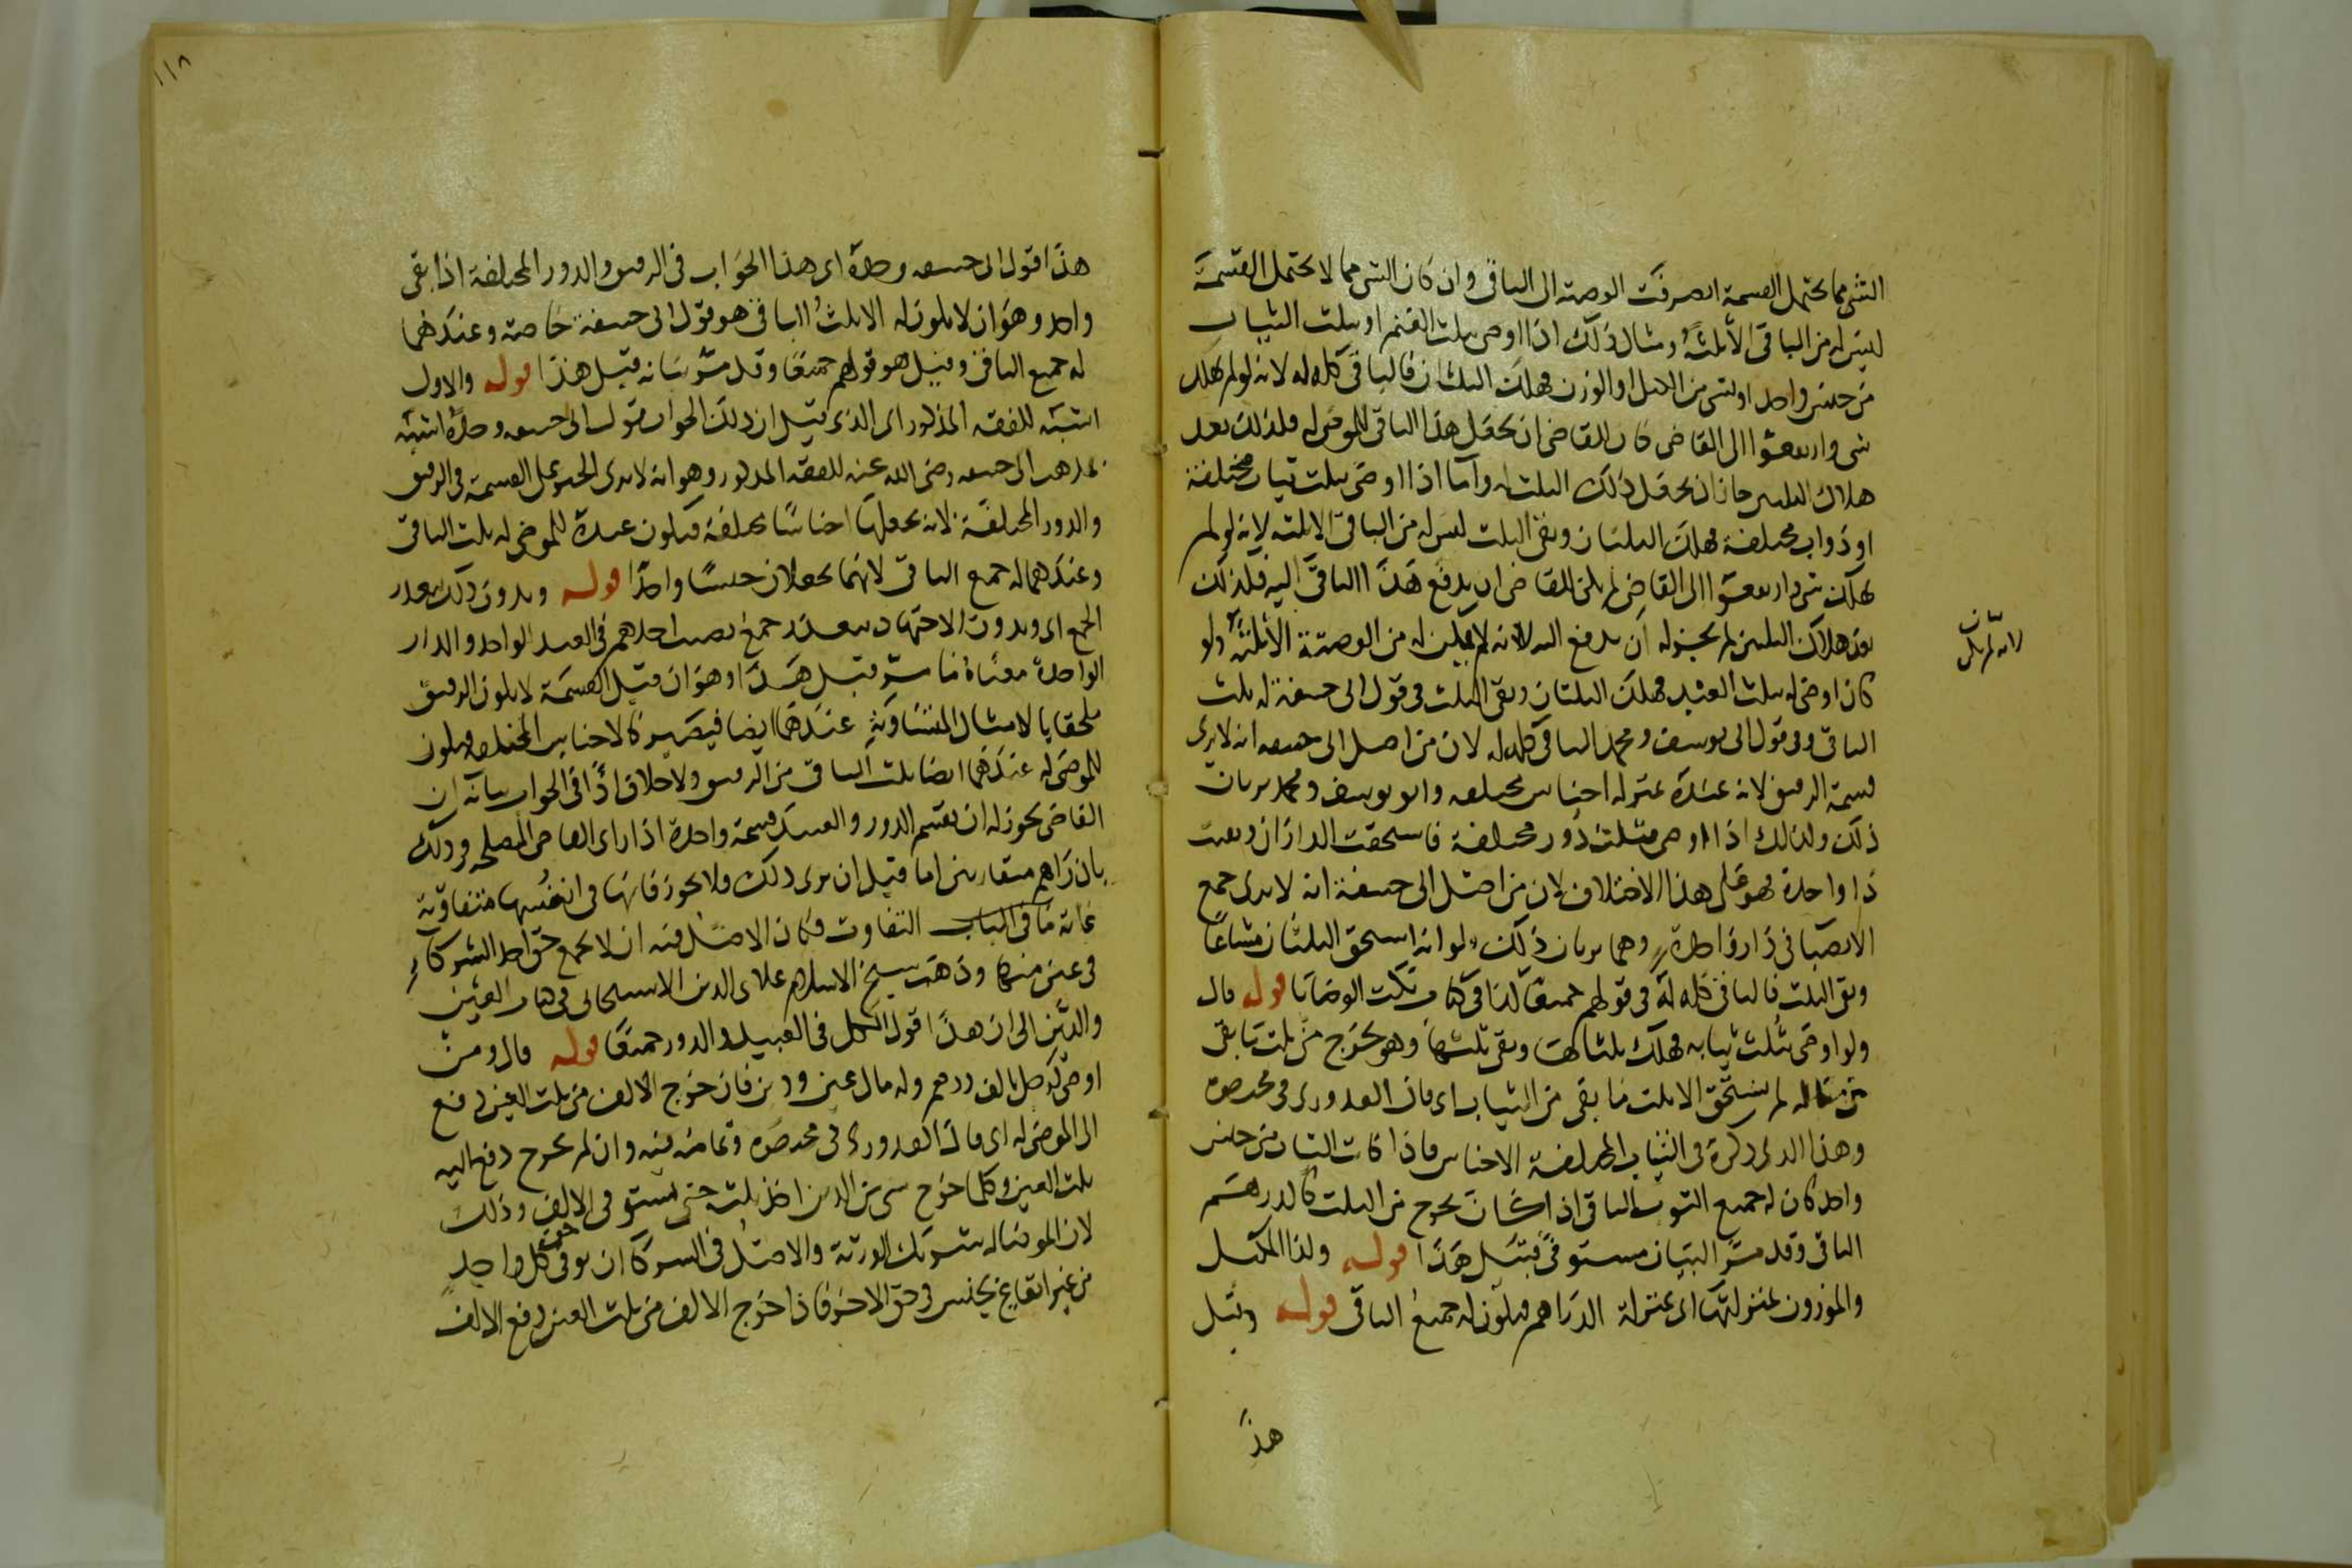 الشي مما يحتمل القسمة انصرفت الوصية الى الباقي وان كان الشي مما لا يحتمل القسمة
ليس له من الباقي الا ثلثه ومثال ذلك اذا اوصى بثلث الغنم او بثلث الثياب
من جنس واحد او بشي من الكيل او الوزن فهلك الثلثان فالباقي كله له لانه لو لم يهلك
شي وارتفعوا الى القاضي كان للقاضي ان يجعل هذا الباقي للموصى له فلذلك بعد
هلاك الثلثين جاز ان يجعل ذلك الثلث له واما اذا اوصى بثلث ثياب مختلفة
او دواب مختلفة فهلك الثلثان وبقى الثلث ليس له من الباقي الا ثلثه لانه لو لم
يهلك شي وارتفعوا الى القاضي لم يكن للقاضي ان يدفع هذا الباقي اليه فلذلك
بعد هلاك الثلثين لم يجز له ان يدفع اليه لانه لم يكن له من الوصية الا ثلثه ولو
لانه لم يكن
كان اوصى له بثلث العبيد فهلك الثلثان وبقى الثلث في قول ابي حنيفة له ثلث
الباقي وفي قول ابي يوسف ومحمد الباقي كله له لان من اصل ابي حنيفه انه لا يرى
قسمة الرقيق لانه عنده بمنزلة اجناس مختلفه وابو يوسف ومحمد يريان
ذلك ولذلك اذا اوصى بثلث دور مختلفة فاستحقت الداران وبقيت
دار واحدة فهو على هذا الاختلاف لان من اصل ابي حنيفة انه لا يرى جمع
الانصبا في دار واحدة وهما يريان ذلك ولو انه استحق الثلثان مشاعا
وبقى الثلث فالباقي كله له في قولهم جميعا كذا في كتاب نكت الوصايا قوله قال
ولو اوصى بثلث ثيابه فهلك ثلثاها وبقى ثلثها وهو يخرج من ثلث ما بقى
من ماله لم يستحق الا ثلث ما بقى من الثياب اي قال القدوري في مختصره
وهذا الذي ذكره في الثياب المختلفة الاجناس فاذا كانت الثياب من جنس
واحد كان له جميع الثوب الباقي اذا كان يخرج من الثلث كالدرهم
الباقي وقد مر البيان مستوفى قبيل هذا قوله ولذا المكيل
والموزون بمنزلتها اي بمنزلة الدراهم فيكون له جميع الباقي قوله وقيل
هذا
١١٨
هذا قول ابي حنيفه وحده اي هذا الجواب في الرقيق والدور المختلفة اذا بقى
واحد وهو ان لا يكون له الا ثلث الباقي هو قول ابي حنيفة خاصة وعندهما
له جميع الباقي وقيل هو قولهم جميعا وقد مر بيانه قبيل هذا قوله والاول
اشبه للفقه المذكور اي الذي قيل ان ذلك الجواب قول ابي حنيفه وحده اشبه
بمذهب ابي حنيفه رضى الله عنه للفقه المذكور وهو انه لا يرى الجبر على القسمة في الرقيق
والدور المختلفة لانه يجعلها اجناسا مختلفة فيكون عنده للموصى له ثلث الباقي
وعندهما له جميع الباقي لانهما يجعلان جنسا واحدا قوله وبدون ذلك يتعذر
الجمع اي وبدون الاجتهاد يتعذر جمع نصيب احدهم في العبد الواحد والدار
الواحدة معناه ما مر قبيل هذا وهو ان قبل القسمة لا يكون الرقيق
ملحقا بالامثال المتساوية عندهما ايضا فيصير كالاجناس المختلفه فيكون
للموصى له عندهما ايضا ثلث الباقي من الرقيق ولا خلاف اذا في الجواب بيانه ان
القاضي يجوز له ان يقسم الدور والعبيد قسمة واحدة اذا راى القاضي المصلحه في ذلك
بان راهم متقاربين اما قبل ان يرى ذلك فلا يجوز فانها في انفسها متفاوتة
غاية ما في الباب التفاوت فكان الاصل فيه ان لا يجمع حق احد الشركاء
في عين منها وذهب شيخ الاسلام علاى الدين الاسبيجابي في كتاب العين
والدين الى ان هذا قول الكل في العبيد والدور جميعا قوله قال ومن
اوصى لرجل بالف درهم وله مال عين ودين فان خرج الالف من ثلث العين دفع
الى الموصى له اي قال القدوري في مختصره وتمامه فيه وان لم يخرج دفع اليه
ثلث العين وكلما خرج شي من الدين اخذ ثلثه حتى يستوفي الالف وذلك
لان الموصى له شريك الورثة والاصل في الشركا ان يوفى حق كل واحد
من غير ايقاع بخس في حق الاخر فاذا خرج الالف من ثلث العين دفع الالف